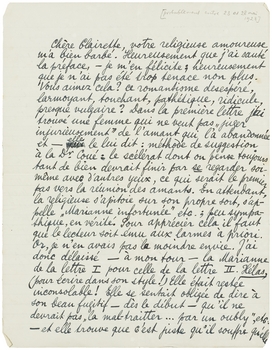 Chère Clairette, votre religieuse amoureuse
m'a bien barbé. Heureusement que j'ai sauté
la préface, — je m'en félicite! heureusement
que je n'ai pas été trop tenace non plus.
Vous aimez cela? ce romantisme désespéré,
larmoyant, touchant, pathétique, ridicule,
presque vulgaire? Dans la première lettre j'ai
trouvé une femme qui ne veut pas „juger
injurieusement" de l'amant qui l'a abandonnée
et — elle le lui dit: méthode de suggestion
à la Dr. Coué: le scélérat dont on pense toujours
tant de bien devrait finir par se regarder soi-
même avec d'autres yeux, ce qui serait le premier
pas vers la réunion des amants. En attendant,
la religieuse s'apitoie sur son propre sort, s'ap-
pelle „Marianne infortunée" etc.: peu sympa-
thique, en vérité. Pour apprécier cela il faut
que le lecteur soit ému aux larmes à priori.
Or, je n'en avais pas la moindre envie. J'ai
donc délaissé — à mon tour — la Marianne
de la lettre I pour celle de la lettre II. Hélas,
(pour écrire dans son style!) Elle était restée
inconsolable! Elle se sentait obligée de dire à
son beau fugitif — dès le début — qu'il ne
devrait pas la maltraitter ... par un oubly, etc.
— et elle trouve que c'est juste qu'il souffre qu'elle